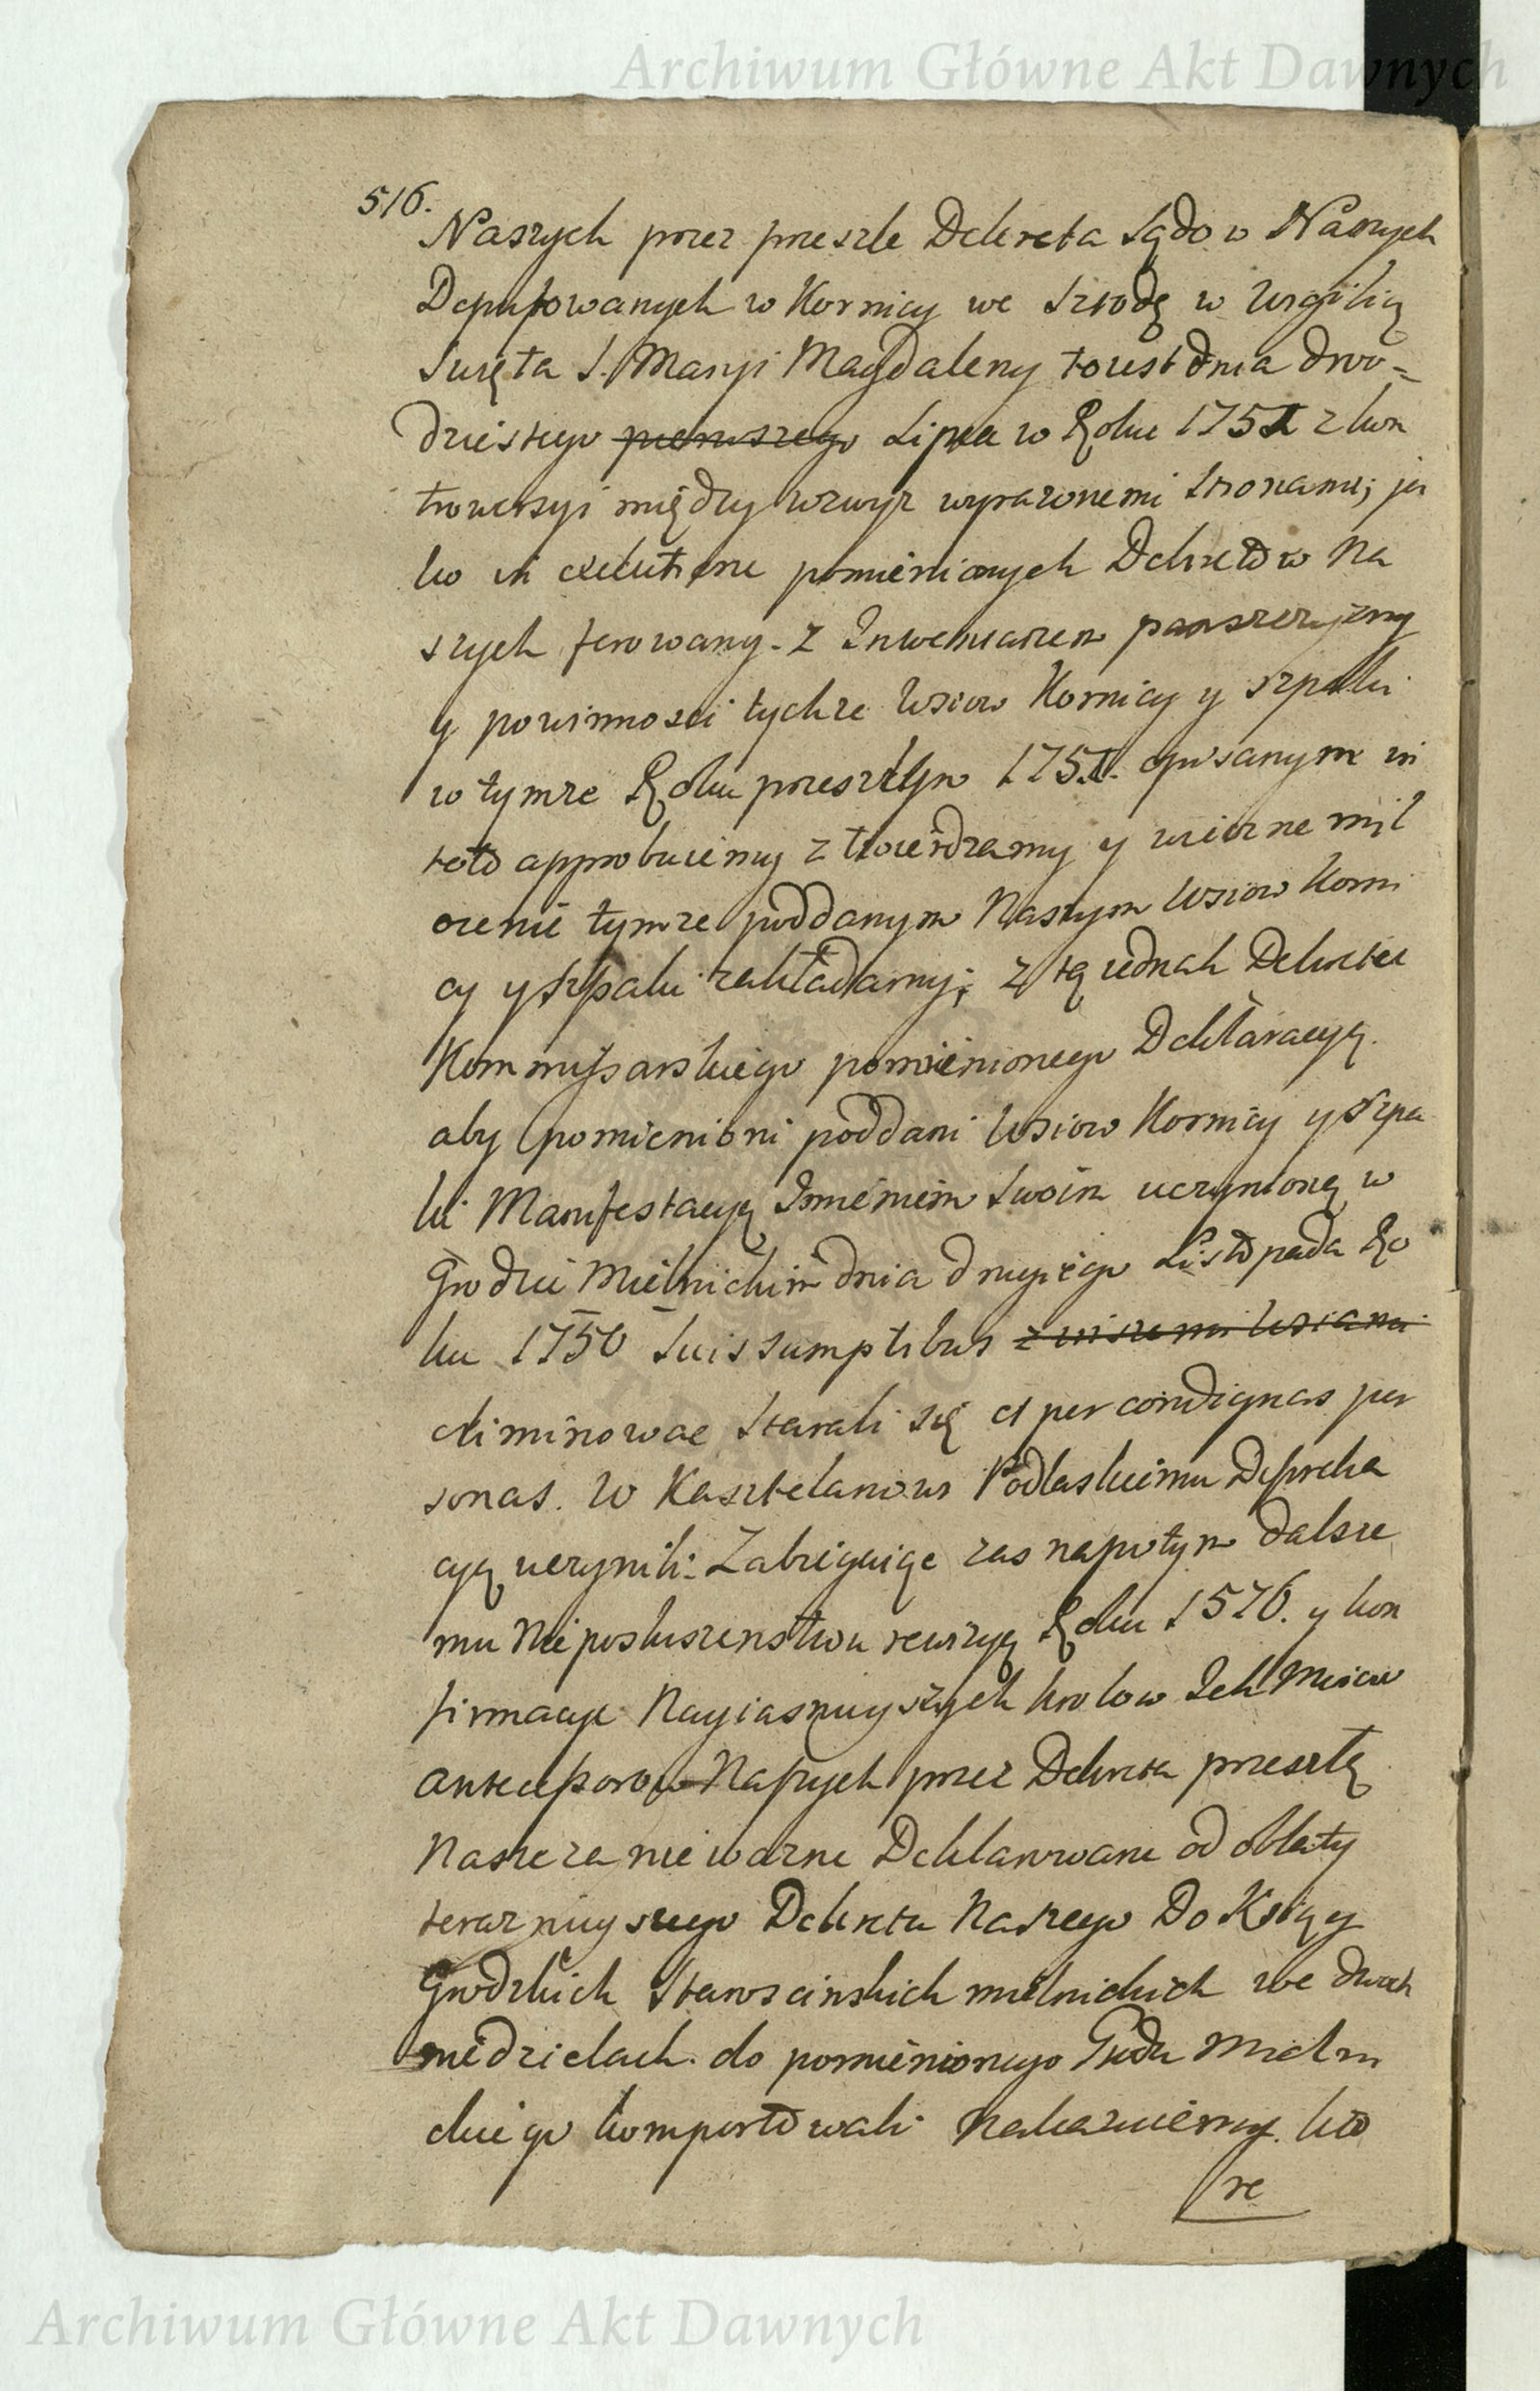 Archiwum Główne Akt Dawnych
516.
Naszych przez przeszłe Dekreta Sądow Naszych
Deputowanych w Kornicy we Szrodę w Wigilią
Swięta S. Maryi Magdaleny to iest dnia dwo=
dziestego pierwszego Lipca w Roku 1751 z kon
trowersyi między wzwyż wyrazonemi Stronami; ja
ko in executione pomienionych Dekretow Na
szych ferowany. z Inwentarzem panszczyzny
y powinnosci tychze Wsiow Kornicy y Szpaki
w tymze Roku przeszłym 1751. opisanym in
toto approbuiemy ztwierdzamy y wieczne mil
czenie tymze poddanym Naszym Wsiow Korni
cy y Szpaki zakładamy; z tą iednak Dekretu
Kommissarskiego pomienionego Deklaracyą.
aby pomienioni poddani Wsiow Kornicy y Szpa
ki Manifestacyą Imieniem Swoim uczynioną w
Grodzie Mielnickim dnia drugiego Listopada Ro
ku 1750 Suis Sumptibus
eliminowac Starali się et per condignas per
sonas. W Kasztelanowi Podlaskiemu Depreka
cyą uczynili. Zabiegaiąc zas napotym dalsze
mu Nieposłuszenstwu rewizyą Roku 1576. y kon
firmacye Nayiasnieyszych krolow Ich Mciow
Antecessorow Naszych przez Dekreta przeszłą
Nasze za nie wazne Deklarowane od oblaty
teraznieyszego Dekretu Naszego Do Ksiąg
Grodzkich Staroscinskich mielnickich we dwoch
niedzielach. do pomienionego Grodu Mielni
ckiego komportowali nakazuiemy. kto
re
Archiwum Główne Akt Dawnych